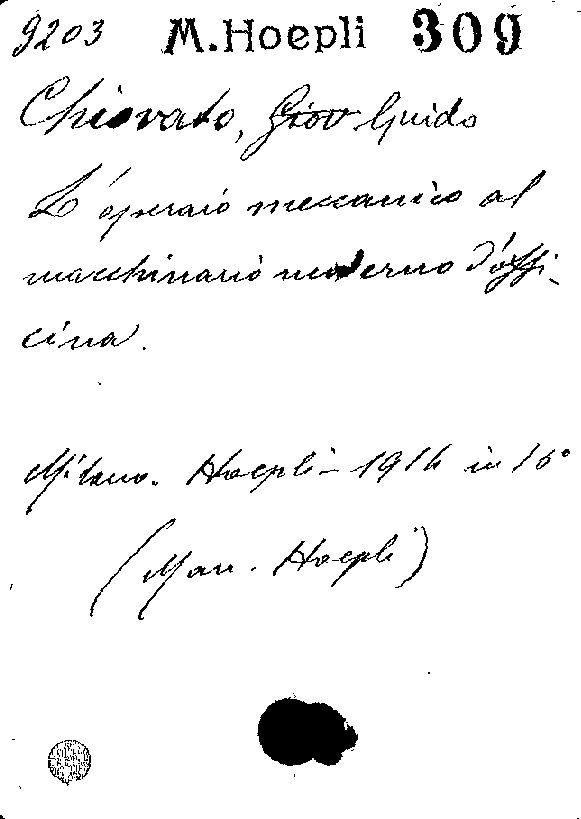 9203 M. Hoepli 309
Chiovato, Giov Guido
L'operaio meccanico al
macchinario moderno d'offi-
cina.
Milano. Hoepli - 1914 in 16°
(Man. Hoepli)